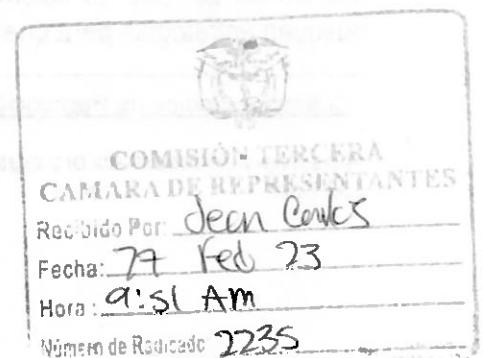 COMISIÓN TERCERA
CAMARA DE REPRESENTANTES
Recibido Por: Jean Carlos
Fecha: Feb 23
Hora: 9:51 AM
Número de Radicado 2235